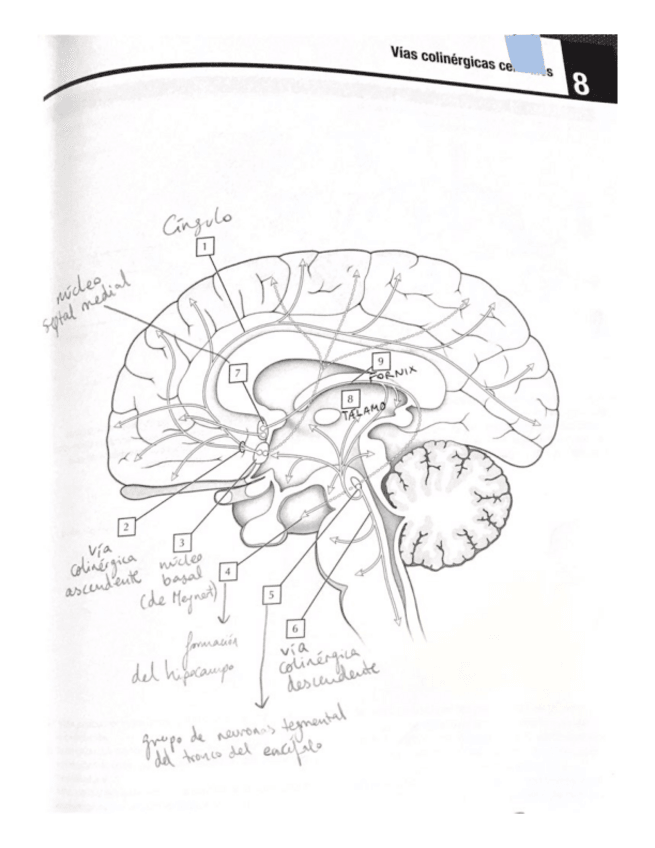 Vías colinérgicas ce s
8
Cíngulo
1
núcleo
septal medial
9
FORNIX
7
8
TÁLAMO
2
vía
colinérgica
ascendente
3
núcleo
basal
(de Meynert)
4
formación
del hipocampo
5
6
vía
colinérgica
descendente
grupo de neuronas tegmental
del tronco del encéfalo